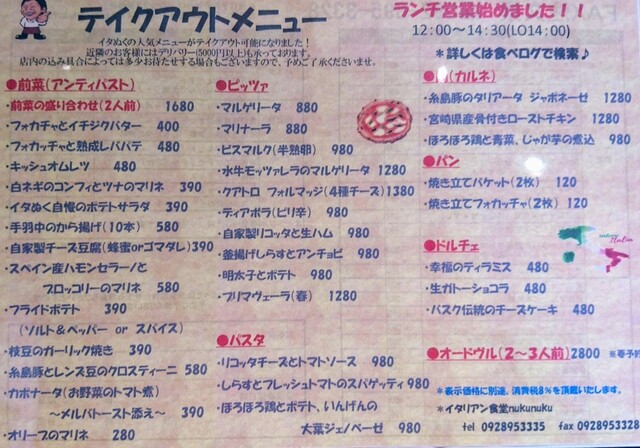 テイクアウトメニュー
イタぬくの人気メニューがテイクアウト可能になりました！
近隣のお客様にはデリバリー(5000円以上)も承っております。
店内の込み具合によっては多少お待たせする場合もございますので、予めご了承くださいませ。
ランチ営業始めました！！
12:00～14:30(LO14:00)
＊詳しくは食べログで検索♪
●前菜(アンティパスト)
・前菜の盛り合わせ(2人前) 1680
・フォカチャとイチジクバター 400
・フォカッチャと熟成レバパテ 480
・キッシュオムレツ 480
・白ネギのコンフィとツナのマリネ 390
・イタぬく自慢のポテトサラダ 390
・手羽中のから揚げ(10本) 580
・自家製チーズ豆腐(蜂蜜orゴマダレ)390
・スペイン産ハモンセラーノと
ブロッコリーのマリネ 580
・フライドポテト 390
(ソルト＆ペッパー or スパイス)
・枝豆のガーリック焼き 390
・糸島豚とレンズ豆のクロスティーニ 580
・カポナータ(お野菜のトマト煮)
～メルバトースト添え～ 390
・オリーブのマリネ 280
●ピッツァ
・マルゲリータ 880
・マリナーラ 880
・ビスマルク(半熟卵) 980
・水牛モッツァレラのマルゲリータ 1280
・クアトロ フォルマッジ(4種チーズ)1380
・ディアボラ(ピリ辛) 980
・自家製リコッタと生ハム 980
・釜揚げしらすとアンチョビ 980
・明太子とポテト 980
・プリマヴェーラ(春) 1280
●パスタ
・リコッタチーズとトマトソース 980
・しらすとフレッシュトマトのスパゲッティ 980
・ほろほろ鶏とポテト、いんげんの
大葉ジェノベーゼ 980
(カルネ)
・糸島豚のタリアータ ジャポネーゼ 1280
・宮崎県産骨付きローストチキン 1280
・ほろほろ鶏と青菜、じゃが芋の煮込 980
●パン
・焼き立てバケット(2枚) 120
・焼き立てフォカッチャ(2枚) 120
●ドルチェ
・幸福のティラミス 480
・生ガトーショコラ 480
・バスク伝統のチーズケーキ 480
●オードヴル(2～3人前)2800
＊表示価格に別途、消費税8％を頂戴いたします。
＊イタリアン食堂nukunuku
tel 0928953335 fax 0928953328